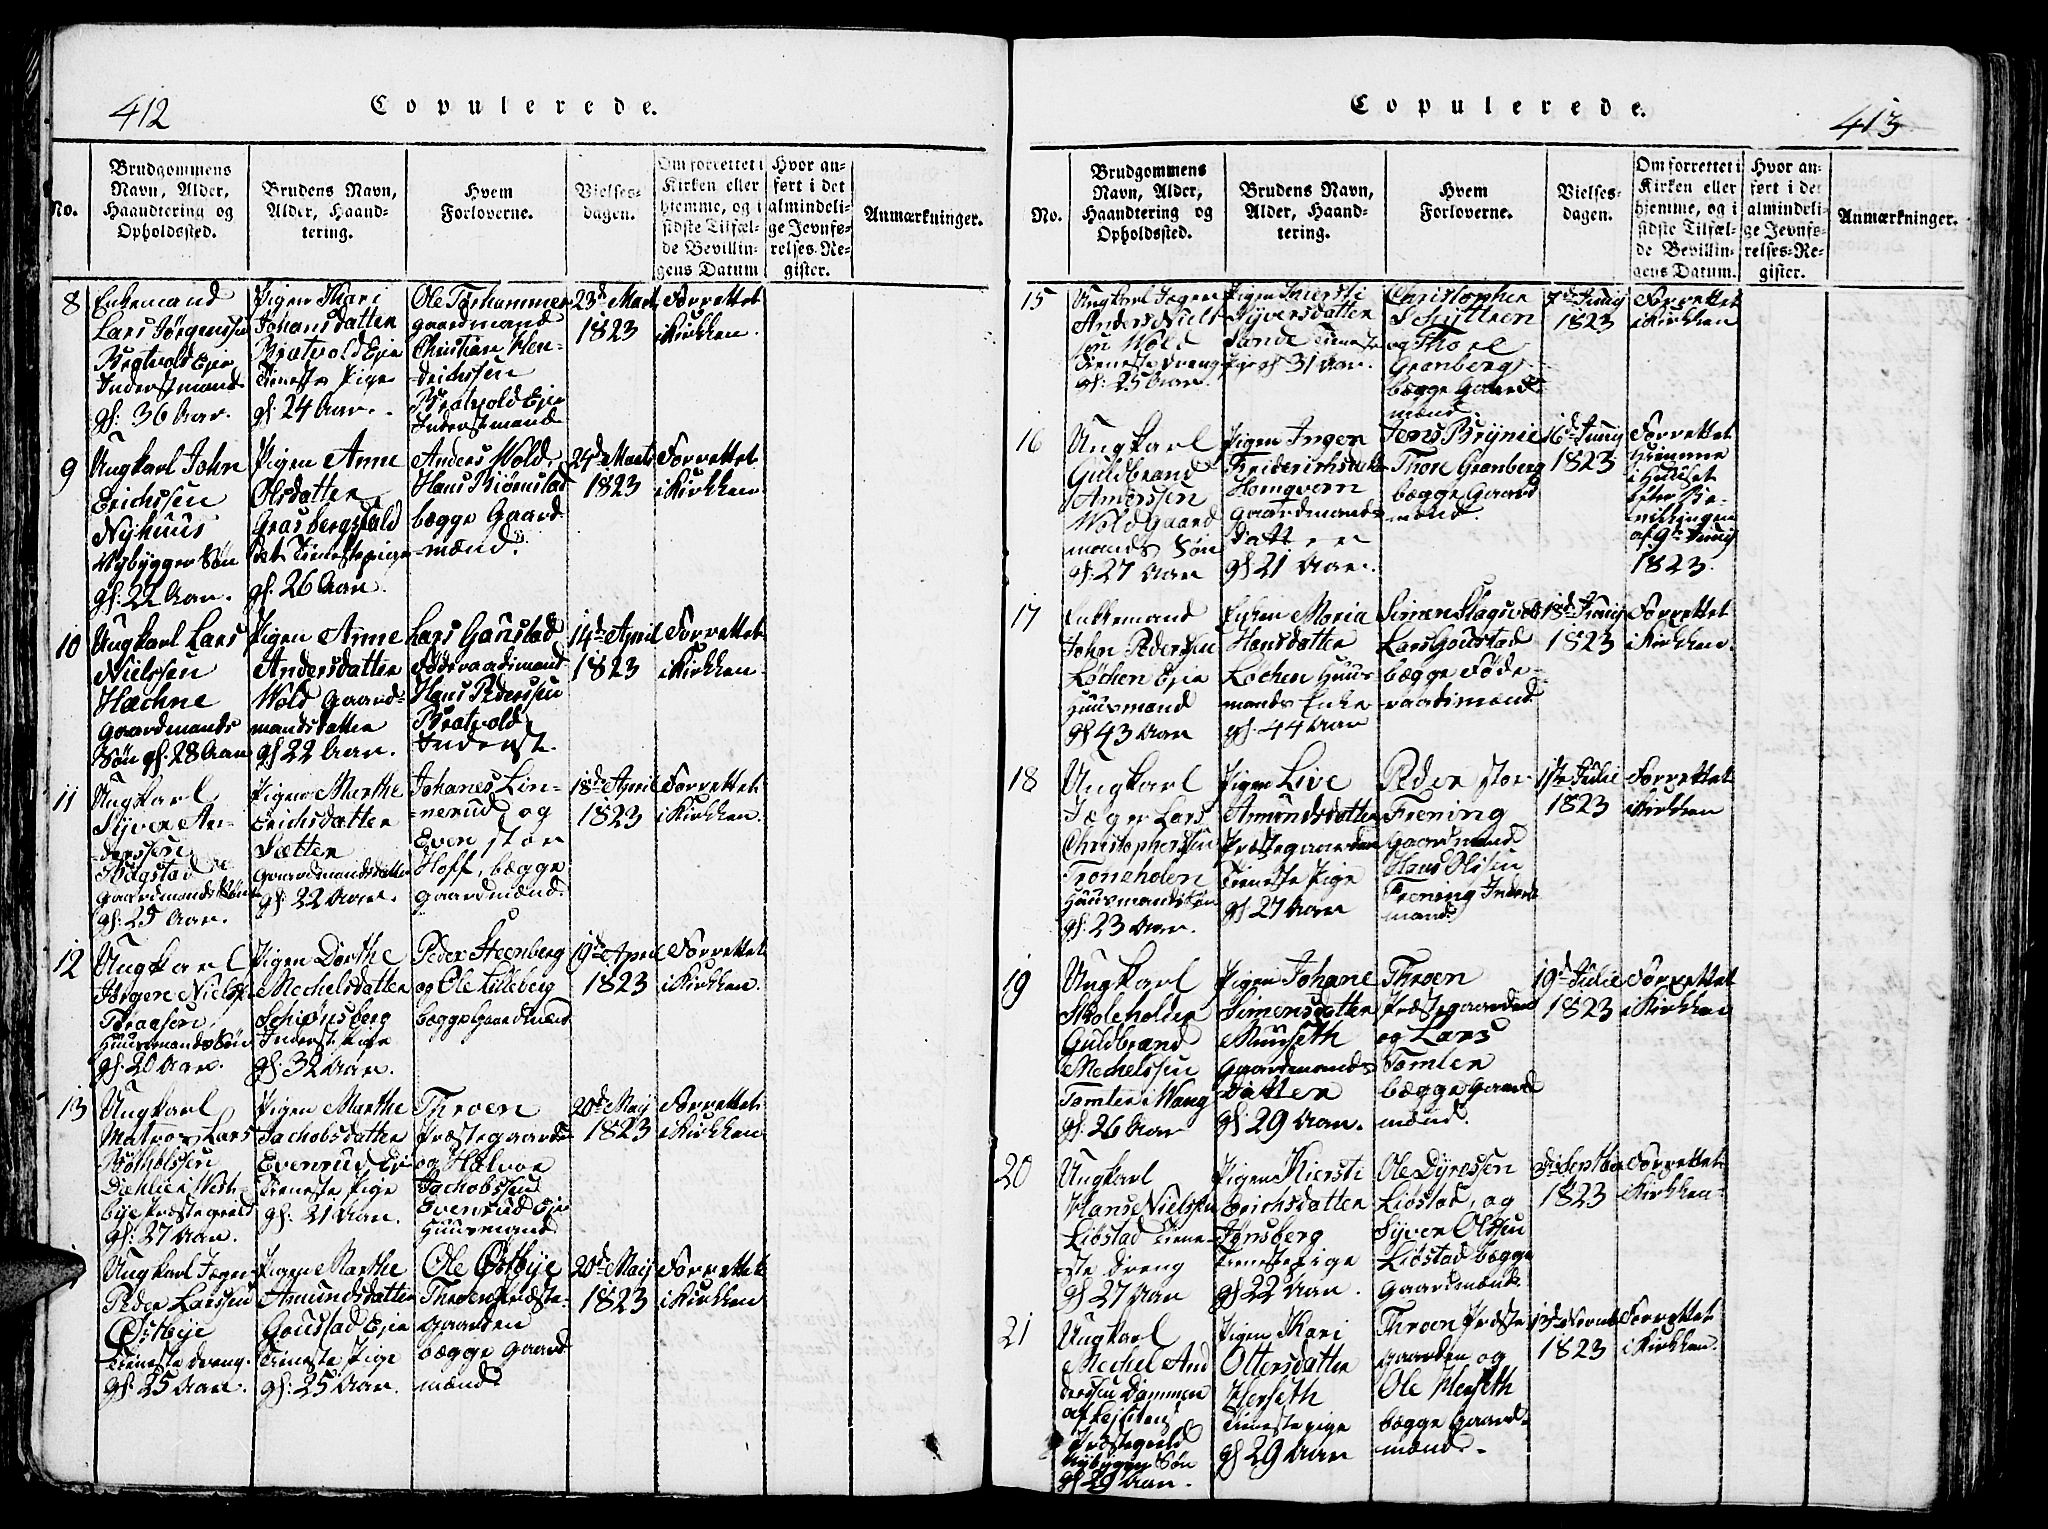 412
Copulerede.
No.
Brudgommens
Navn, Alder,
Haandtering og
Opholdssted.
Brudens Navn,
Alder, Haand-
tering.
Hvem
Forloverne.
Vielses-
dagen.
Om forrettet i
Kirken eller
hjemme, og i
sidste Tilfæl-
de Bevillin-
gens Datum
Hvor an-
ført i det
almindeli-
ge Jevnfø-
relses-Re-
gister.
Anmærkninger.
8
Enkemand
Lars Jørgenssen
Bratvold Eje
Inderstmand
gl: 36 Aar.
Pigen Kari
Johansdatter
Bratvold Eje
Tieneste Pige
gl: 24 Aar.
Ole Torhammer
gaardmand
Christian Hen-
drichssen
Bratvold Eje
Inderstmand
23d Marts
1823
Forrettet
i Kirkken.
9
Ungkarl John
Erichssen
Nyhuus
Nybygger Søn
gl: 22 Aar.
Pigen Anne
Olsdatter
Grasbergs
Tienestepige
gl: 26 Aar.
Anders Wold
Hans Biørnstad
begge Gaard
-mænd.
Marts
1823
Forrettet
i Kirkken
10
Ungkarl Lars
Nielssen
Hæchne
Gaardmands
Søn gl: 28 Aar
Pigen Anne
Andersdatter
Wold Gaard-
mandsdatter
gl: 22 Aar.
Lars Gaustad
Føderaadsmand
Hans Pederssen
Bratvold
Inderst.
14d April
1823
Forrettet
i Kirkken
11
Ungkarl
Syver An-
derssen
Hagstad
Gaardmands Søn
gl: 25 Aar.
Pigen Marthe
Erichsdatter
Sætter
Gaardmandsdatter
gl: 22 Aar.
Johanes Lin-
-nerud og
Even stor
Hoff, begge
gaardmænd.
18d April
1823
Forrettet
i Kirkken.
12
Ungkarl
Jørgen Nielssen
Braasen
Huusmands Søn
gl: 20 Aar.
Pigen Dorthe
Mechelsdatter
Schiønsberg
Inderste Pige
gl: 32 Aar.
Peder Steenberg
og Ole Lilleberg
begge Gaardmænd
19d April
1823
Forrettet
i Kirkken.
13
Ungkarl
Matros Lars
Dæhlie i West-
bye Præstegield
gl: 27 Aar.
Pigen Marthe
Jachobsdatter
Evenrud Ei
Tieneste Pige
gl: 21 Aar.
Throen
Præstegaarde
og Halvor
Jachobssen
Evenrud Eje
Huusmand
20d Maij
1823
Forrettet
i Kirkken
Ungkarl Jeger
Peder Larssen
Østbye
Tieneste dreng.
gl: 25 Aar.
Pigen Marthe
Amundsdatter
Goustad Eje
Tieneste Pige
gl: 25 Aar.
Ole Østbye
Throen Præste-
gaarden
begge Gaard
mænd
20d Maij
1823
Forrettet
i Kirkken
Copulerede.
413
No.
Brudgommens
Navn, Alder,
Haandtering og
Opholdssted.
Brudens Navn,
Alder, Haand-
tering.
Hvem
Forloverne.
Vielses-
dagen.
Om forrettet i
Kirken eller
hjemme, og i
sidste Tilfæl-
de Bevillin-
gens Datum.
Hvor an-
ført i det
almindeli-
ge Jevnfø-
relses-Re-
gister.
Anmærkninger.
15
Ungkarl Jæger
Anders Niels-
sen Wold
Tieneste dreng
gl: 25 Aar.
Pigen Kiersti
Syversdatter
Sande Tieneste
Pige gl 31 Aar.
Christopher
Schytten
og Thore
Grønberg
begge Gaard
mænd.
7d Junij
1823
Forrettet
i Kirkken
16
Ungkarl
Guldbrand
Anderssen
Wold Gaard
mands Søn
gl: 27 Aar
Pigen Inger
Friderichsdatter
Homqvern
Gaardmands
Datter
gl 21 Aar.
Jens Brynie
Thore Grønberg
begge Gaard
mænd.
16d Junij
1823
Forrettet
hiemme
i Huuset
efter Be-
villingen
af 9de Junij
1823.
17
Enkkemand
John Pederssen
Løchen Eje
Huusmand
gl 43 Aar
Enken Maria
Hansdatter
Løchen Huus-
mands Enke
gl: 44 Aar
Simen Slagsvold
Lars Goustad
begge Føde-
raadsmænd
18d Junij
1823
Forrettet
i Kirkken.
18
Ungkarl
Jæger Lars
Christopherssen
Troneholen
Huusmands Søn
gl: 23 Aar.
Pigen Live
Amundsdatter
Præstegaarden
Tieneste Pige
gl: 27 Aar
Peder stor
Frening
Gaardmand
Hans Olssen
Frening Inderst
mand
Julie
1823
Forrettet
i Kirkken
19
Ungkarl
Skoleholder
Guldbrand
Mechelssen
Tomler i Wang
gl: 26 Aar
Pigen Johane
Simensdatter
Muuseth
Gaardmands
datter
gl: 29 Aar.
Throen
Præstegaarden
og Lars
Tomler
begge Gaard
mænd.
19d Julie
1823
Forrettet
i Kirkken
20
Ungkarl
Hans Nielssen
Liøstad Tiene-
-ste dreng
gl 27 Aar
Pigen Kiersti
Erichsdatter
Jønsberg
Tieneste Pige
gl 22 Aar.
Ole Dyressen
Liøstad, og
Syver Olssen
Liøstad begge
Gaardmænd
1823
Forrettet
i Kirkken
21
Ungkarl
Mechel And
derssen Dammen
af
Præstegield
Nybygger Søn
gl 29 Aar.
Pigen Kari
Ottersdatter
Herseth
Tieneste pige
gl 29 Aar
Throen Præste
gaarden og
Ole Herseth
begge Gaard-
mænd.
1823
Forrettet
i Kirkken.